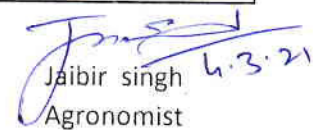 4.3.21
Jaibir singh
Agronomist